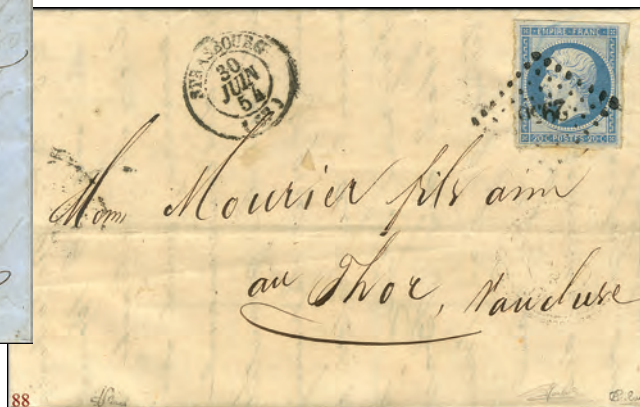 STRASBOURG
30
JUIN
54
EMPIRE FRANC
20 C POSTES 20 C
Mons Mourier fils ainé
au Thor, Vaucluse
88